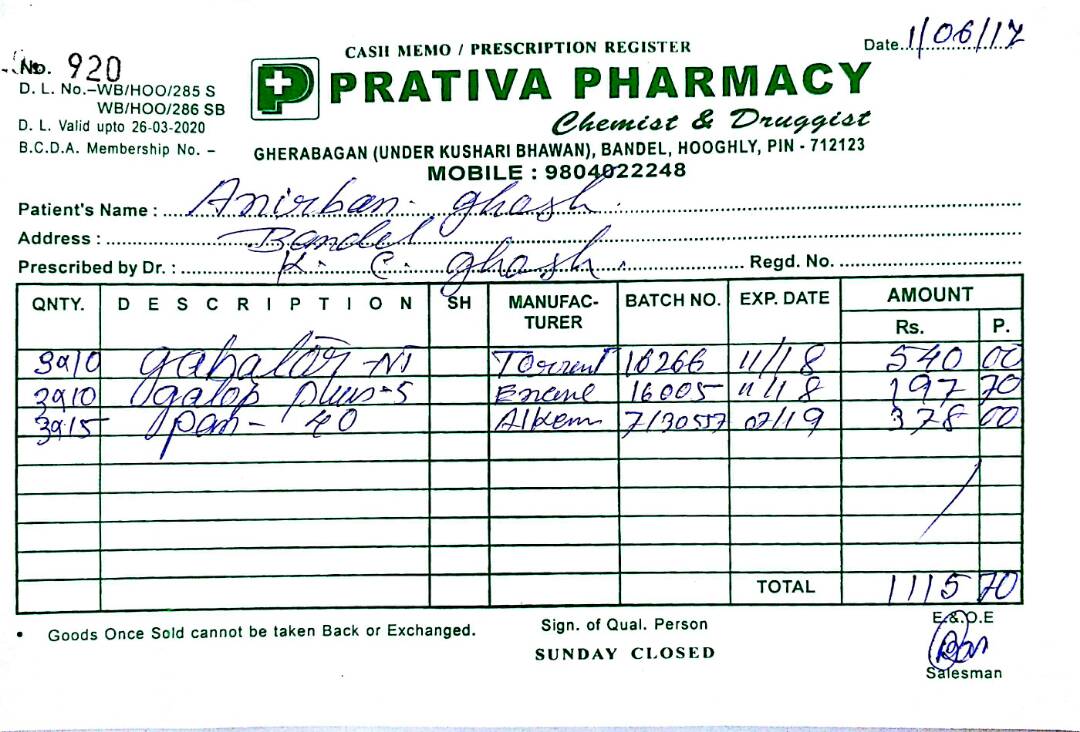 CASH MEMO / PRESCRIPTION REGISTER
Date. 1/06/17
No. 920
D. L. No.–WB/HOO/285 S
WB/HOO/286 SB
D. L. Valid upto 26-03-2020
B.C.D.A. Membership No. –
P PRATIVA PHARMACY
Chemist & Druggist
GHERABAGAN (UNDER KUSHARI BHAWAN), BANDEL, HOOGHLY, PIN - 712123
MOBILE : 9804022248
Patient's Name : Anirban Ghosh
Address : Bandel
Prescribed by Dr. : K. C. Ghosh. Regd. No.
QNTY. DESCRIPTION SH MANUFAC-TURER BATCH NO. EXP. DATE AMOUNT
Rs. P.
3@10 gabator NT Torrent 16266 11/18 540 00
3@10 galop plus-5 16005 11/18 197 70
3@15 pan- 40 Alkem 7130557 07/19 378 00
TOTAL 1115 70
• Goods Once Sold cannot be taken Back or Exchanged.
Sign. of Qual. Person
E.&.O.E
SUNDAY CLOSED
Salesman